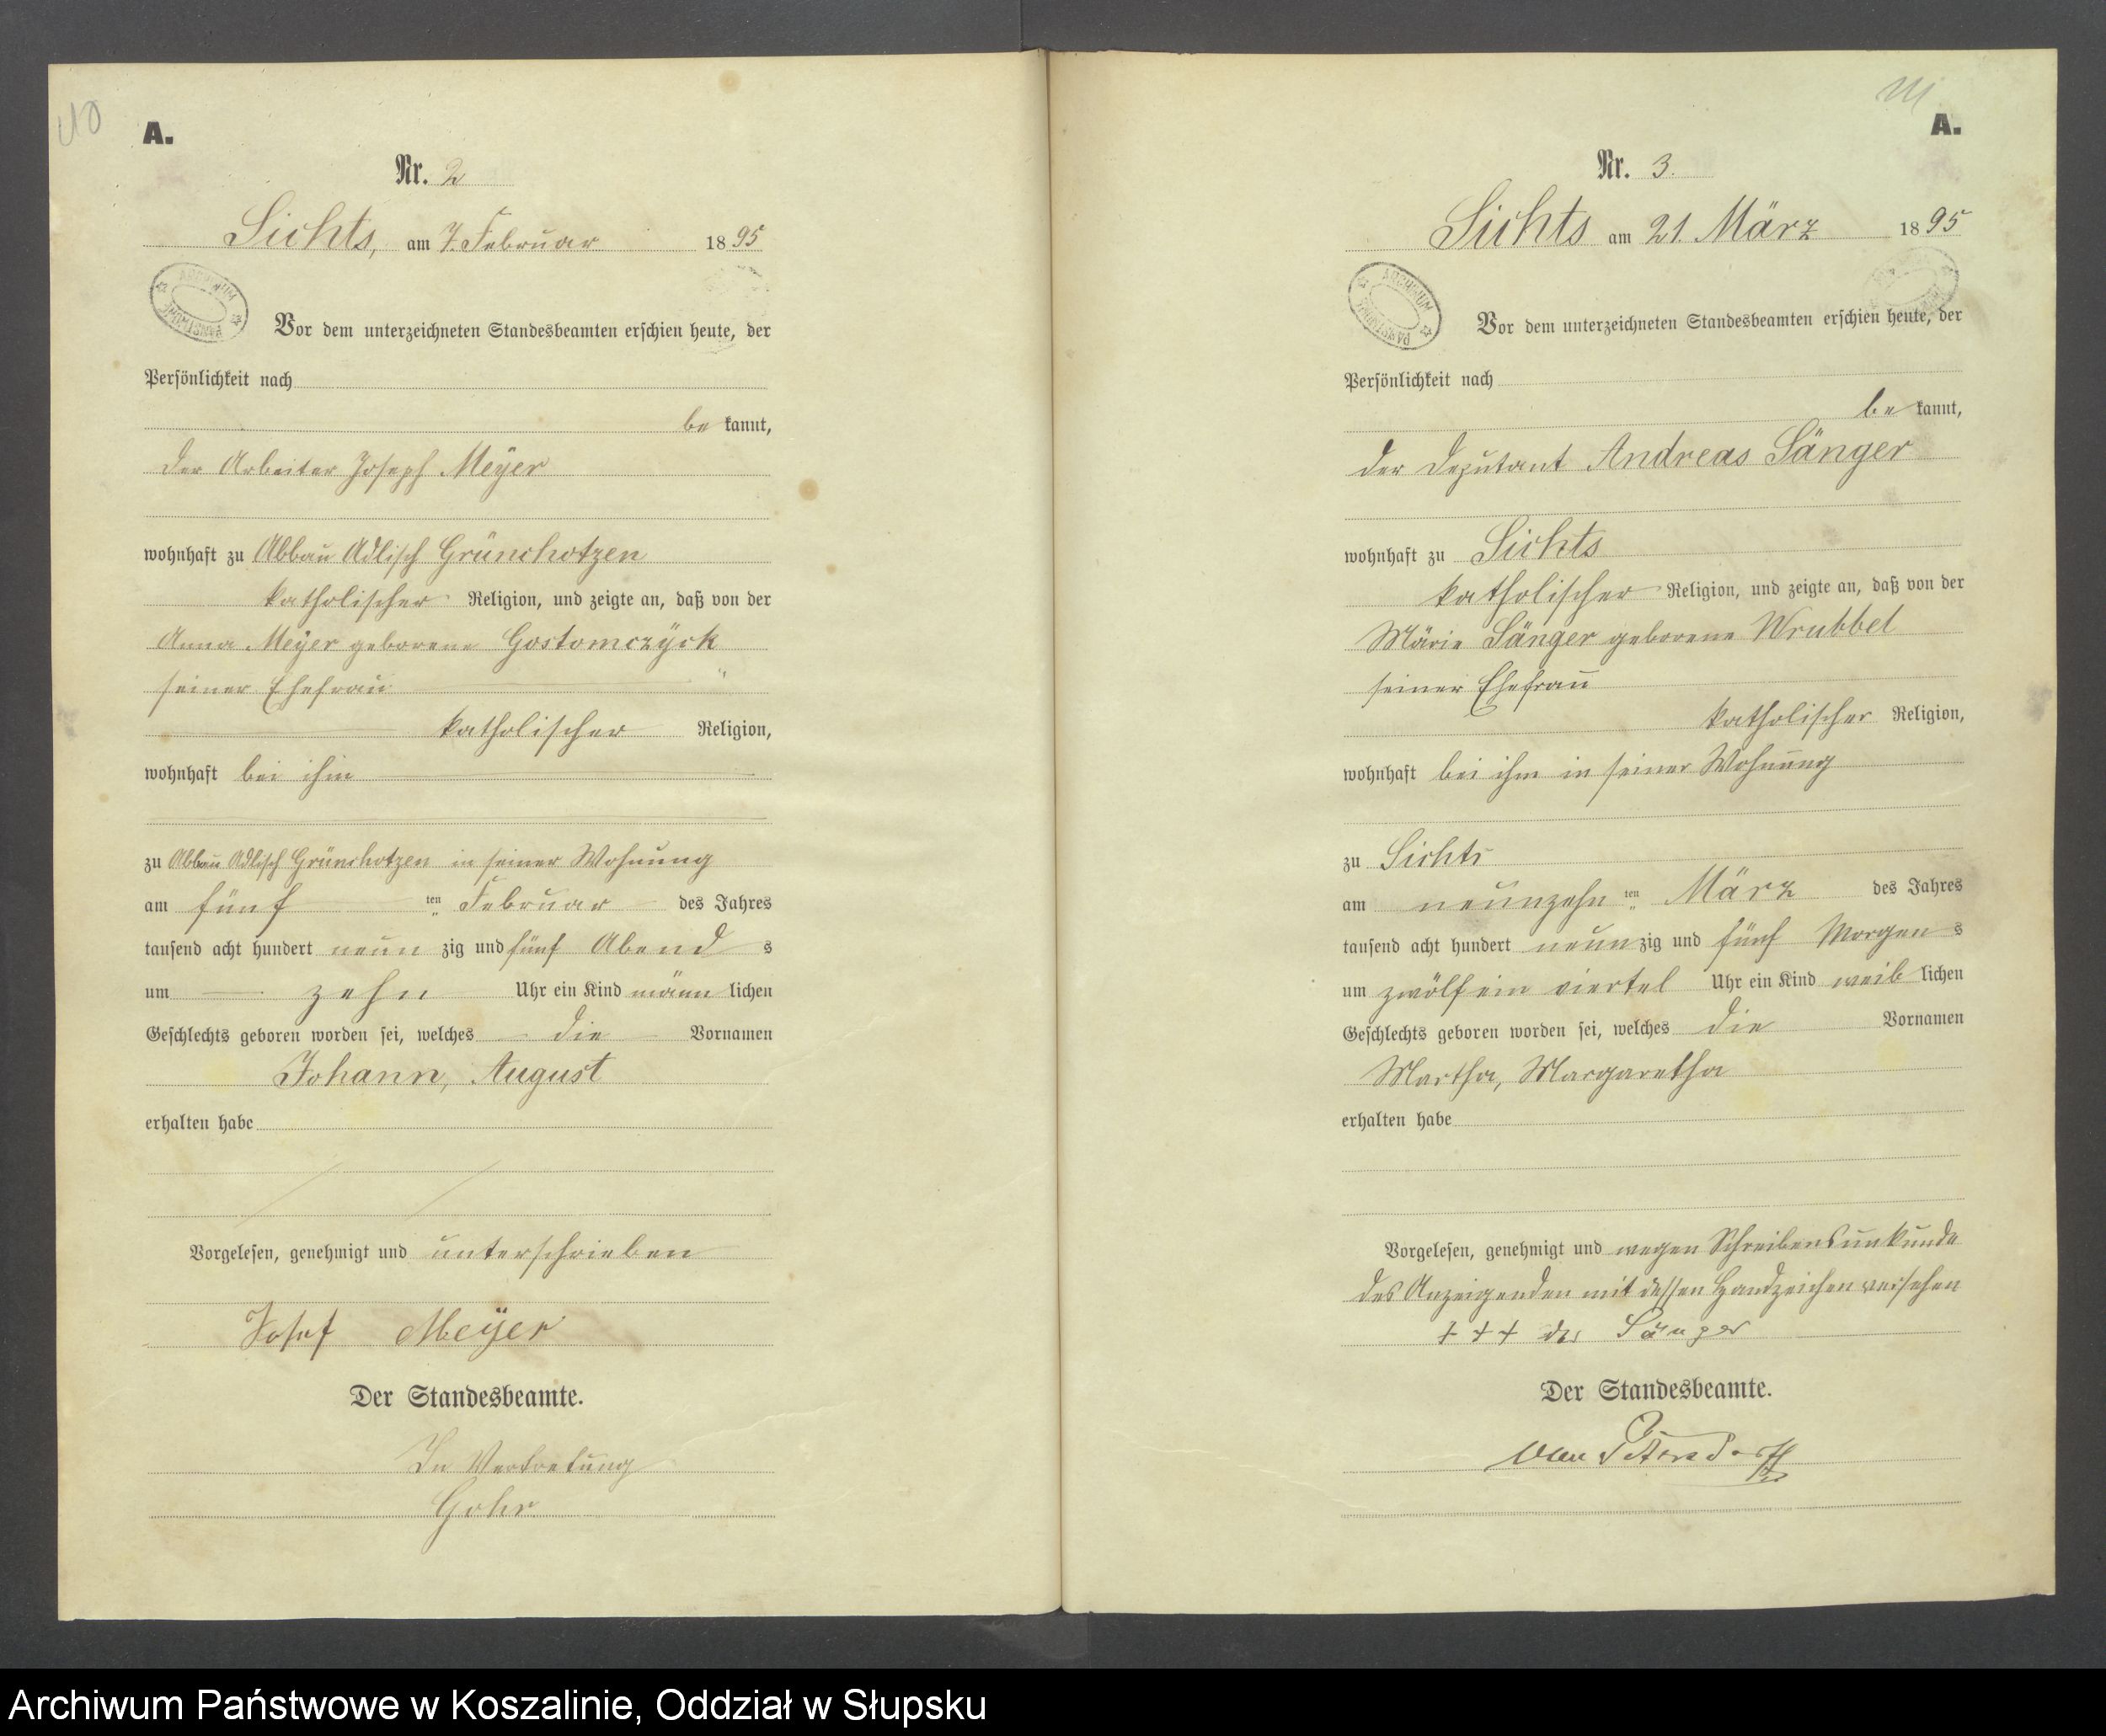 110
A.
Nr. 2
Sichts, am 7. Februar 1895
ARCHIWUM PAŃSTWOWE
Vor dem unterzeichneten Standesbeamten erschien heute, der
Persönlichkeit nach
be kannt,
der Arbeiter Joseph Meÿer
wohnhaft zu Abbau Adlisch Grünchotzen
katholischer Religion, und zeigte an, daß von der
Anna Meÿer geborene Gostomczÿck
seiner Ehefrau
katholischer Religion,
wohnhaft bei ihm
zu Abbau Adlisch Grünchotzen in seiner Wohnung
am fünf ten Februar des Jahres
tausend acht hundert neun zig und fünf Abend s
um zehn Uhr ein Kind männ lichen
Geschlechts geboren worden sei, welches die Vornamen
Johann, August
erhalten habe
Vorgelesen, genehmigt und unterschrieben
Josef Meÿer
Der Standesbeamte.
In Vertretung
Gohr
111
A.
Nr. 3.
Sichts am 21. März 1895
ARCHIWUM PAŃSTWOWE
Vor dem unterzeichneten Standesbeamten erschien heute, der
Persönlichkeit nach
be kannt,
der Deputant Andreas Sänger
wohnhaft zu Sichts
katholischer Religion, und zeigte an, daß von der
Marie Sänger geborene Wrubbel
seiner Ehefrau
katholischer Religion,
wohnhaft bei ihm in seiner Wohnung
zu Sichts
am neunzehn ten März des Jahres
tausend acht hundert neun zig und fünf Morgen s
um zwölf ein viertel Uhr ein Kind weib lichen
Geschlechts geboren worden sei, welches die Vornamen
Martha, Margaretha
erhalten habe
Vorgelesen, genehmigt und wegen Schreibensunkunde
des Anzeigenden mit dessen Handzeichen versehen
+ + + des Sänger
Der Standesbeamte.
von Petersdorff
Archiwum Państwowe w Koszalinie, Oddział w Słupsku